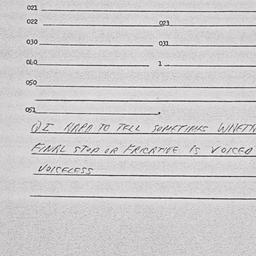 021
022 023
030 031
040 1
050
051 .
HARD TO TELL SOMETIMES WHETH
FINAL STOP OR FRICATIVE IS VOICED
VOICELESS